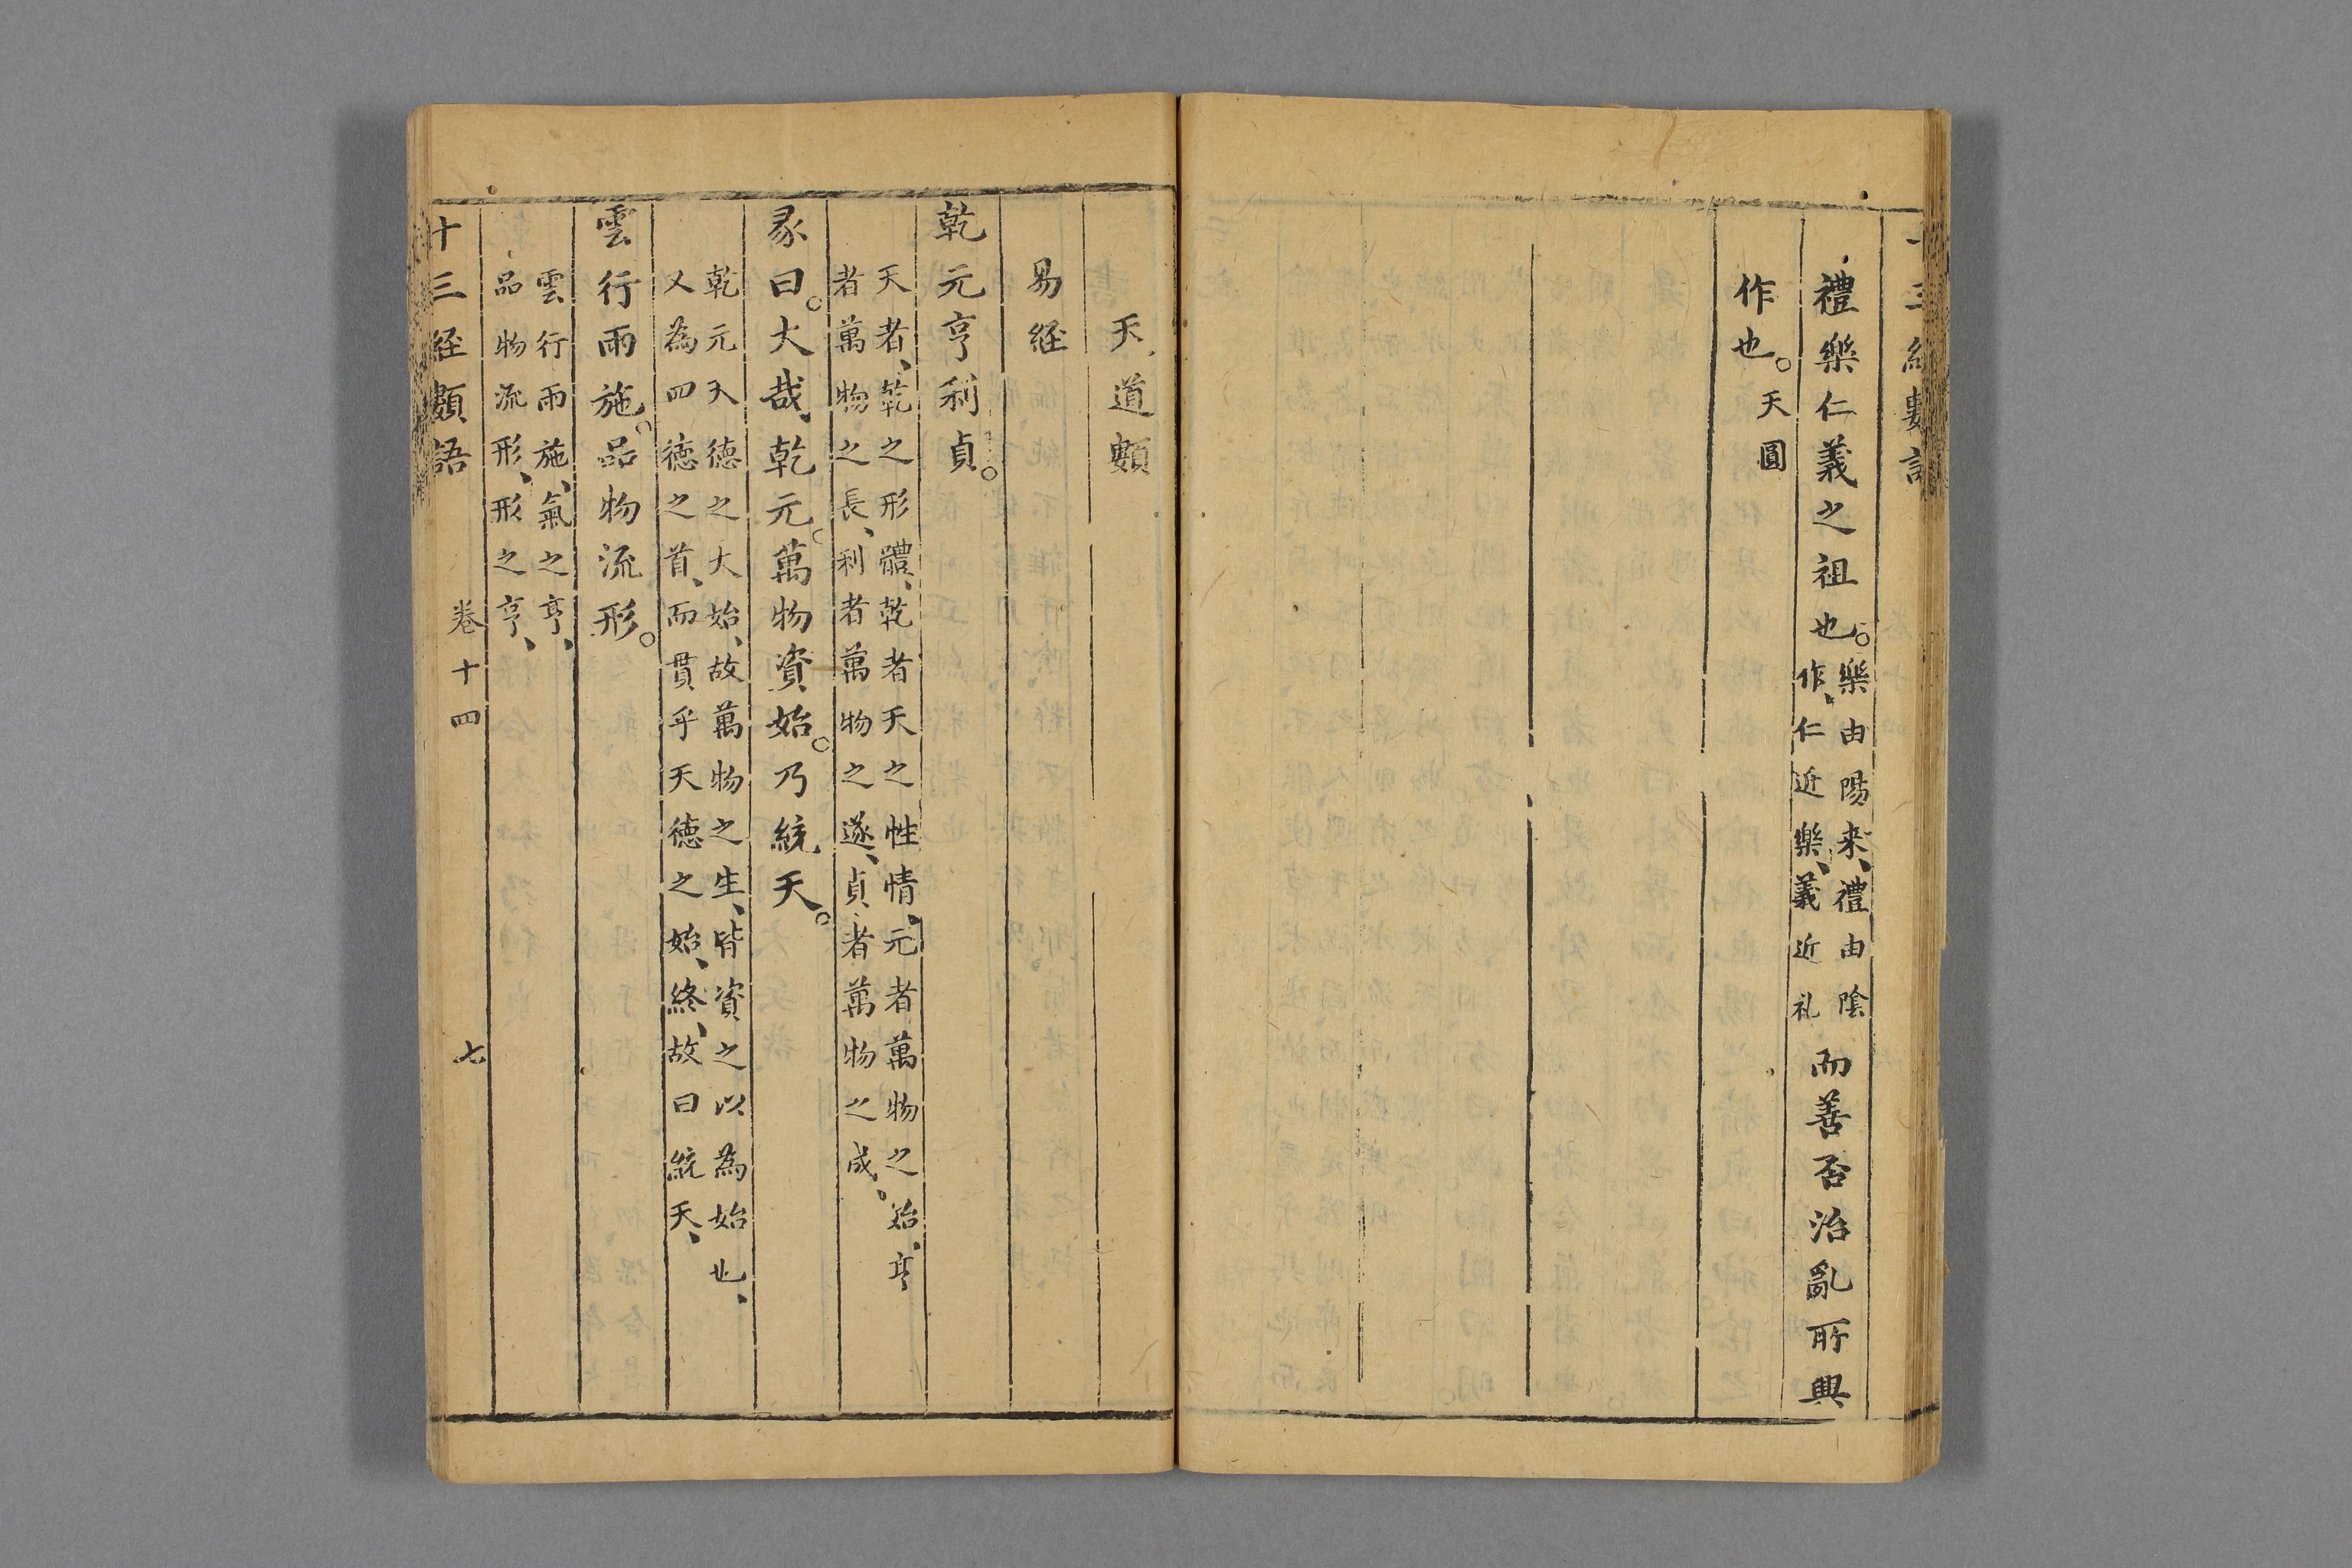 禮樂仁義之祖也。樂由陽来、禮由陰作、仁近樂、義近礼而善否治亂所興
作也。天圓
天道類
易経
乾元亨利貞。
天者、乾之形體、乾者天之性情、元者萬物之始、亨
者萬物之長、利者萬物之遂、貞者萬物之成。
彖曰。大哉、乾元。萬物資始。乃統天。
乾元天徳之大始、故萬物之生、皆資之以為始也、
又為四徳之首、而貫乎天徳之始、終、故曰統天、
雲行雨施。品物流形。
雲行雨施、氣之亨、
品物流形、形之亨、
十三経類語 卷十四 七